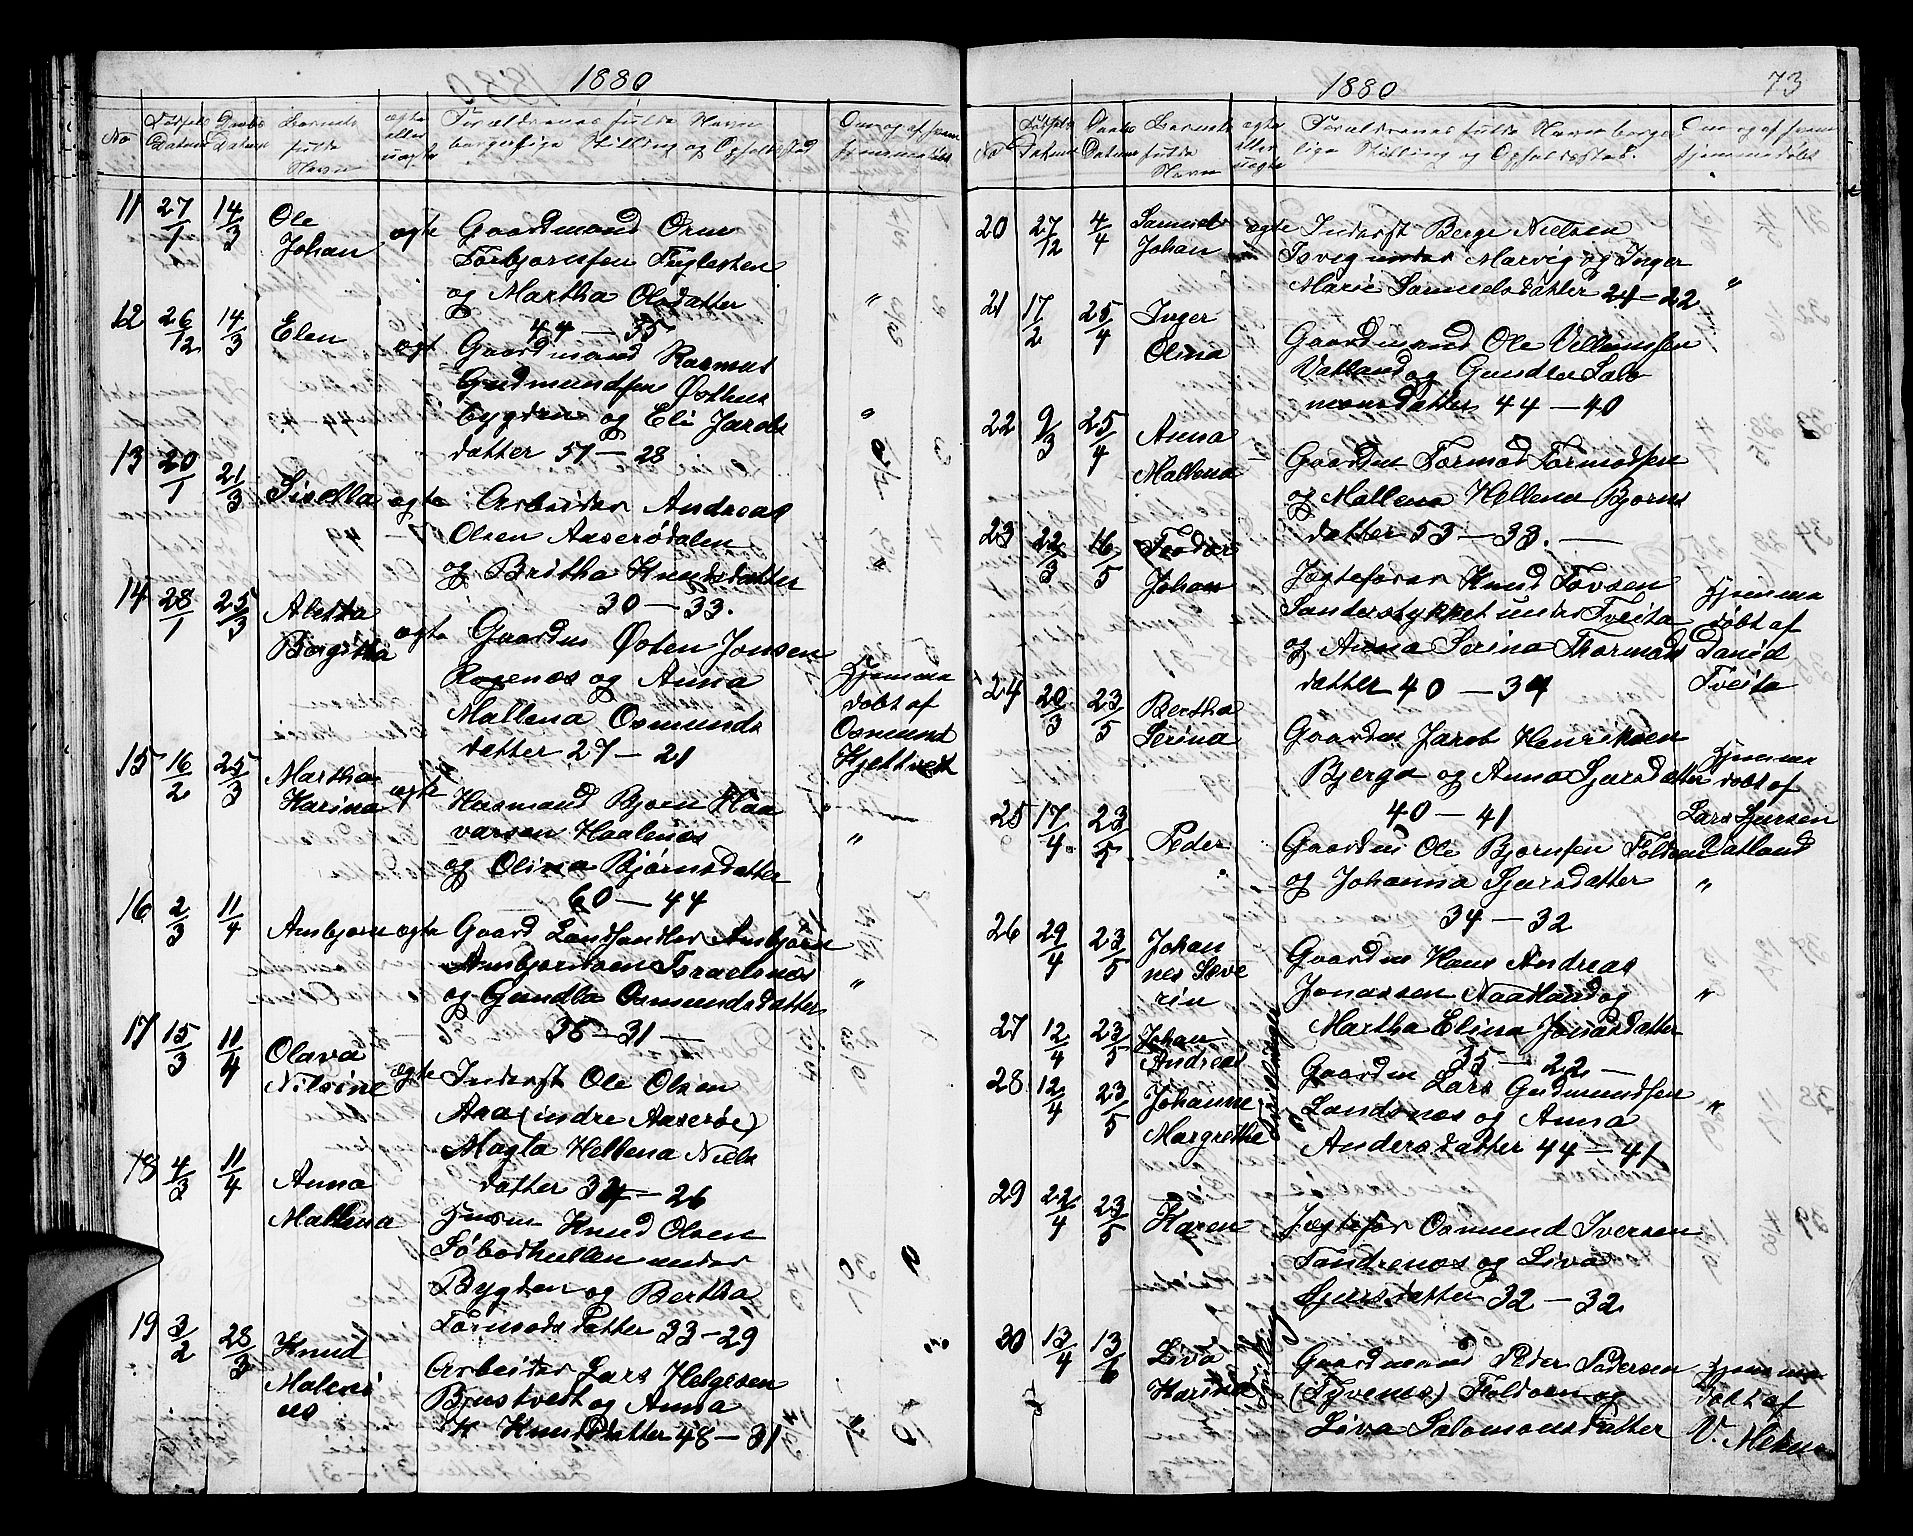 1880
No Fødsels Datum Daabs Datum Barnets fulde Navn ægte eller uægte Forældrenes fulde Navn borgerlige Stilling og Opholdssted Om og af hvem hjemmedøbt
11 27/1 14/3 Ole Johan ægte Gaardmand Orm
Torbjornsen Fuglesten
og Martha Olsdatter "
44 – 35
12 26/12 14/3 Elen ægt Gaardmand Rasmus
Gudmundsen Østhus
bygden og Eli Jacobs "
datter 51 – 28
13 20/1 21/3 Sisella ægte Arbeider Andreas
Olsen Aaserødalen
og Britha Knudsdatter
30 – 33.
14 28/1 25/3 Aletha Birgitha ægte Gaardm Østen Jonsen
Rogenæs og Anna Hjemme
Mallena Osmunds døbt af
datter 27 – 21 Osmund
Hjettvedt
15 16/2 25/3 Martha Karina ægte Husmand Bjorn Haa
varsen Haalenæs "
og Olina Bjørnsdatter
60 – 44
16 2/3 11/4 Ambjorn ægte Gaard Landhandler Ambjørn
Ambjornsen Israelsnæs "
og Gundla Osmundsdatter
36 – 31 –
17 15/3 11/4 Olava Nilsine ægte Inderst Ole Olsen
Aaa (indre Aaserøe)
Magta Hellena Niels
datter 34 – 26
18 4/3 11/4 Anna Mallena Husm Knud Olsen
Søbodhullen under
Bygden og Bertha
Tormodsdatter 33 – 29
19 3/2 28/3 Knud Malenius Arbeider Lars Helgesen
Bustvedt og Anna
K Knudsdatter 48 – 31 "
1880 73
No Fødsels Datum Daabs Datum Barnets fulde Navn ægte eller uægte Forældrenes fulde Navn borger
lige Stilling og Opholdssted. Om og af hvem hjemmedøbt
20 27/12 4/4 Samuel Johan ægte Inderst Berge Nielsen
Tsvig under Marvig og Inger
Marie Samuelsdatter 24 – 22 "
21 17/2 25/4 Inger Olina Gaardmand Ole Villumsen
Vatland og Gundla Salo
monsdatter 44 – 40
22 9/3 25/4 Anna Mallena Gaardm Tormod Tormodsen
og Mallena Hellena Bjorns
datter 53 – 33. –
23 22/3 16/5 Teodor Johan Jægtefører Knud Tovsen Hjemme
Sanderstykket under Tveita døbt af
og Anna Serina Thormods
datter 40 – 34 Tveita
24 20/3 23/5 Bertha Serina Gaardm Jacob Henriksen Hjemme
Bjerga og Anna Sjursdatter døbt af
40 – 41 Lars Sjursen
Vatland
25 17/4 23/5 Peder Gaardm Ole Bjornsen Foldøen
og Johanna Sjursdatter "
34 – 32
26 29/4 23/5 Johan nes Seve rin Gaardm Hans Andreas
Jonassen Naadland og "
Martha Elina Jonasdatter
35 – 22 –
27 12/4 23/5 Johan Andreas Tvillinger Gaardm Lars Gudmundsen
28 12/4 23/5 Johanne Margrethe Landsnæs og Anna "
Andersdatter 44 – 41
29 22/4 23/5 Karen Jægtefør Osmund Iversen
Tandrenæs og Liva
Sjursdatter 32 – 32
30 13/4 13/6 Liva Karina Gaardmand Peder Pedersen Hjemme
(Tyvenæs) Foldøen og døbt af
Liva Salomonsdatter